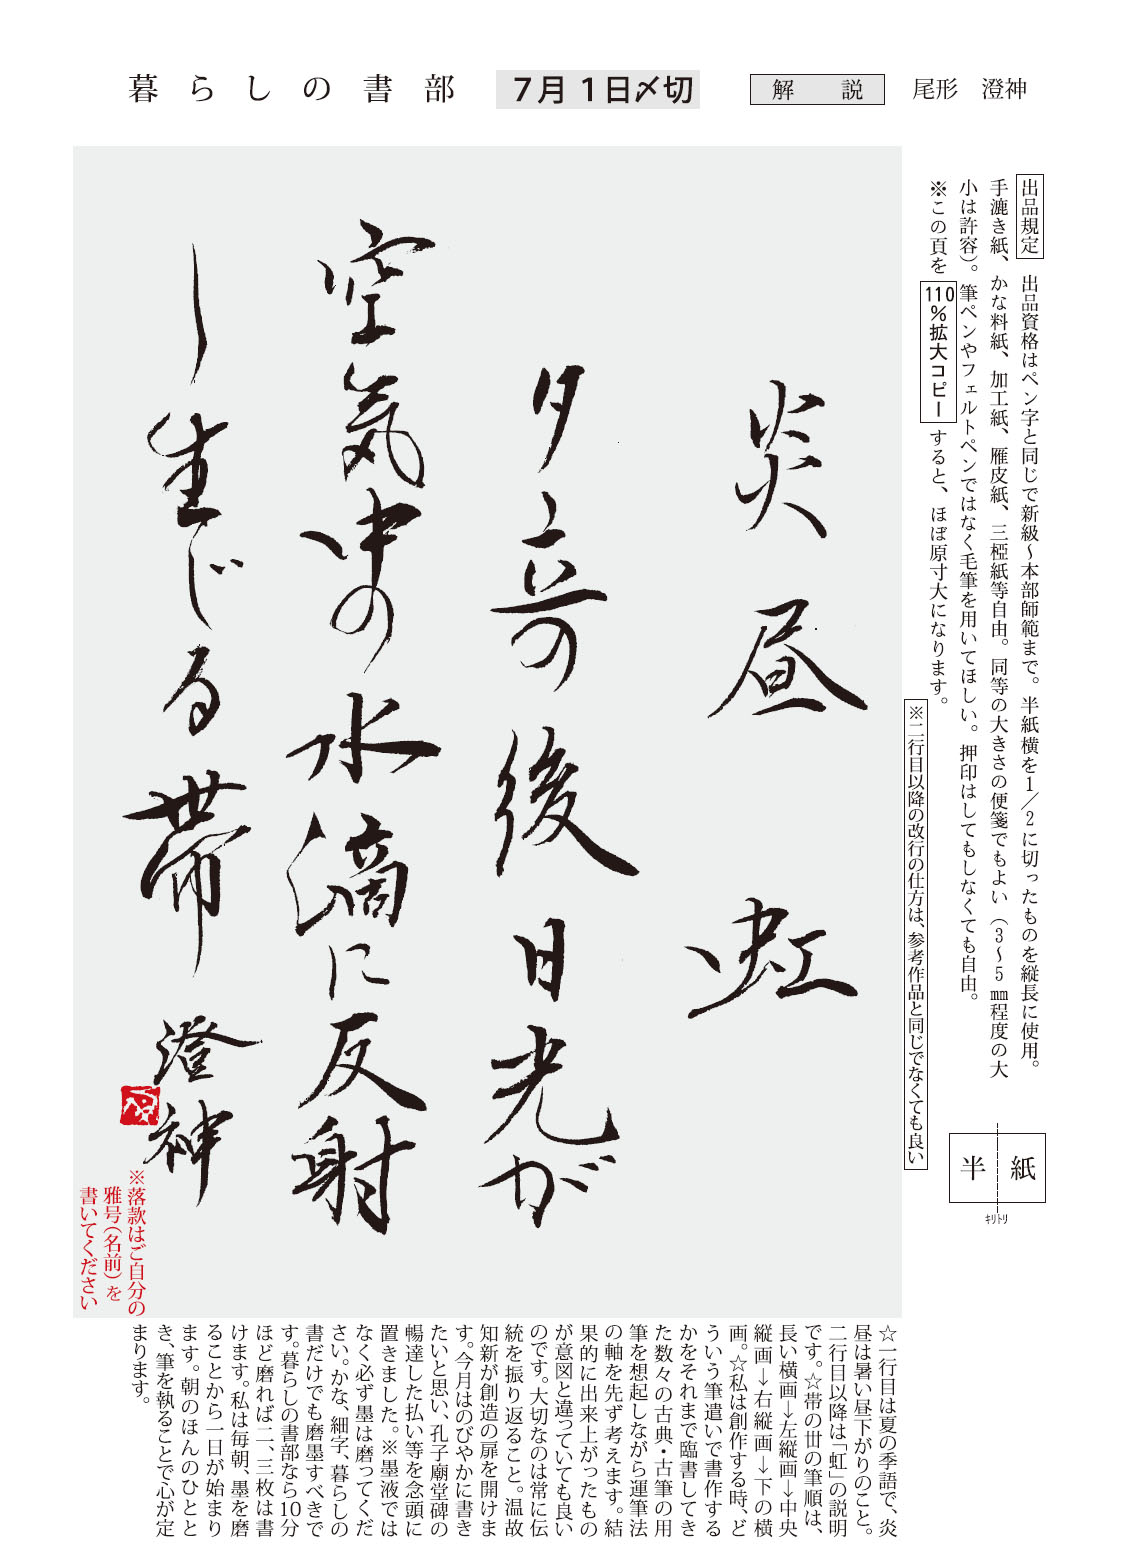 暮らしの書部　７月１日〆切　解　説　尾形　澄神
出品規定　出品資格はペン字と同じで新級～本部師範まで。半紙横を1／2に切ったものを縦長に使用。
手漉き紙、かな料紙、加工紙、雁皮紙、三椏紙等自由。同等の大きさの便箋でもよい（3～5㎜程度の大
小は許容）。筆ペンやフェルトペンではなく毛筆を用いてほしい。押印はしてもしなくても自由。
※この頁を110％拡大コピーすると、ほぼ原寸大になります。
※二行目以降の改行の仕方は、参考作品と同じでなくても良い
半紙
キリトリ
炎昼　虹
夕立の後日光が
空気中の水滴に反射
し生じる帯　澄神
※落款はご自分の
雅号（名前）を
書いてください
☆一行目は夏の季語で、炎
昼は暑い昼下がりのこと。
二行目以降は「虹」の説明
です。☆帯の丗の筆順は、
長い横画→左縦画→中央
縦画→右縦画→下の横
画。☆私は創作する時、ど
ういう筆遣いで書作する
かをそれまで臨書してき
た数々の古典・古筆の用
筆を想起しながら運筆法
の軸を先ず考えます。結
果的に出来上がったもの
が意図と違っていても良い
のです。大切なのは常に伝
統を振り返ること。温故
知新が創造の扉を開けま
す。今月はのびやかに書き
たいと思い、孔子廟堂碑の
暢達した払い等を念頭に
置きました。※墨液では
なく必ず墨は磨ってくだ
さい。かな、細字、暮らしの
書だけでも磨墨すべきで
す。暮らしの書部なら10分
ほど磨れば二、三枚は書
けます。私は毎朝、墨を磨
ることから一日が始まり
ます。朝のほんのひとと
き、筆を執ることで心が定
まります。